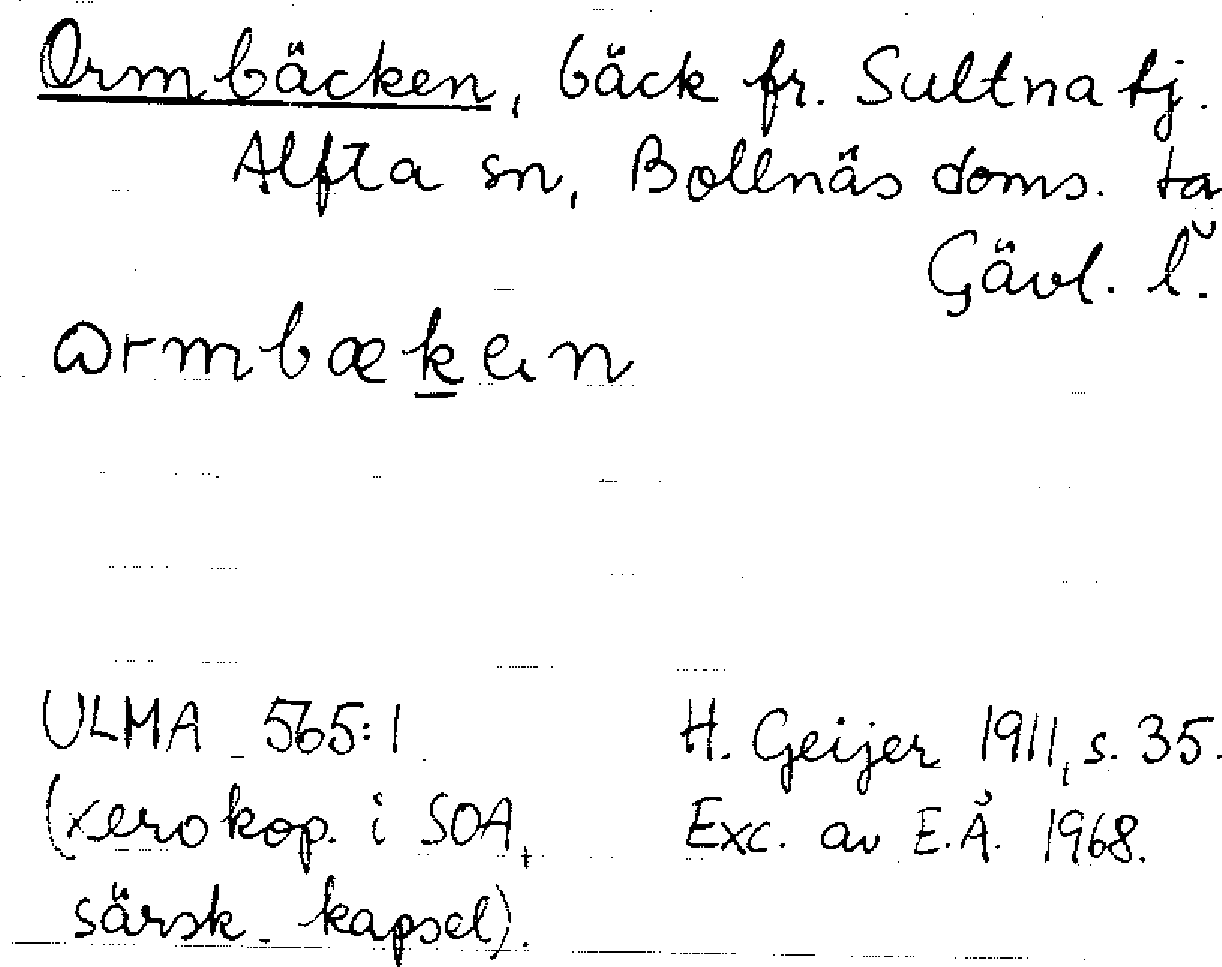 Ormbäcken, bäck fr. Sultnatj.
Alfta sn, Bollnäs doms. ta
Gävl. l.
ɷrmbæken
ULMA 565:1
(xerokop. i SOA,
särsk. kapsel).
H. Geijer 1911, s. 35.
Exc. av E.Å. 1968.